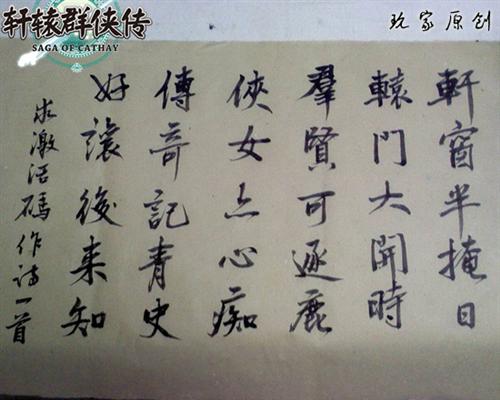 轩辕群侠传
SAGA OF CATHAY
玩家原创
軒窗半掩日
轅門大開時
羣賢可逐鹿
俠女点心痴
傳奇記青史
好讓後来知
求激活碼作诗一首